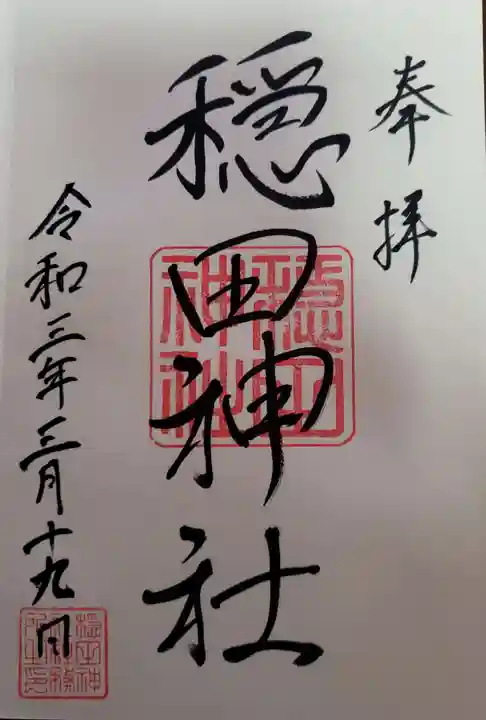 奉拝
穏田神社
穏田神社
令和三年三月十九日